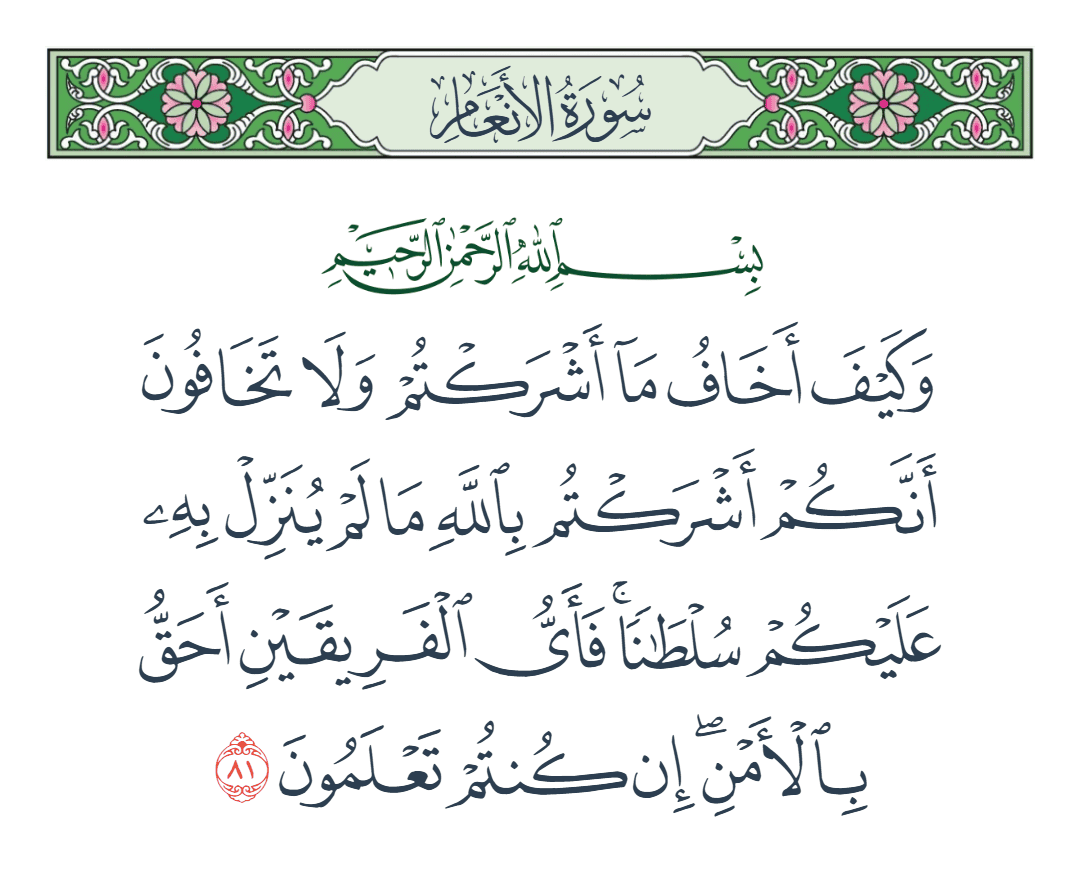 سُورَةُ الأَنْعَامِ
بِسْمِ ٱللَّهِ ٱلرَّحْمَٰنِ ٱلرَّحِيمِ
وَكَيْفَ أَخَافُ مَآ أَشْرَكْتُمْ وَلَا تَخَافُونَ
أَنَّكُمْ أَشْرَكْتُم بِٱللَّهِ مَا لَمْ يُنَزِّلْ بِهِۦ
عَلَيْكُمْ سُلْطَٰنًا ۚ فَأَىُّ ٱلْفَرِيقَيْنِ أَحَقُّ
بِٱلْأَمْنِ ۖ إِن كُنتُمْ تَعْلَمُونَ ٨١